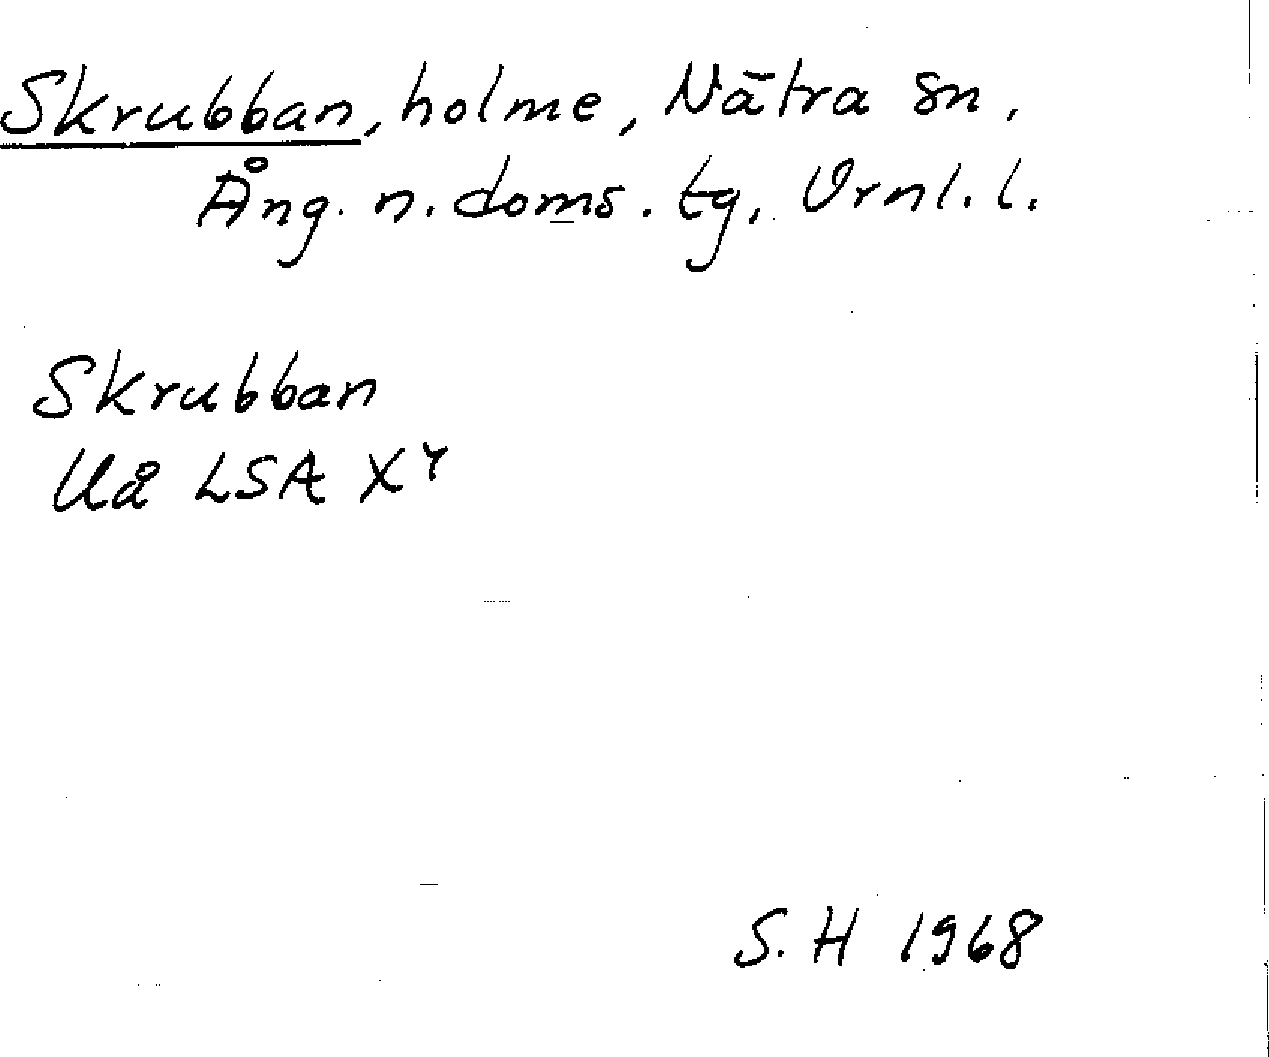 Skrubban, holme, Nätra sn,
Ång. n. doms. tg, Vrnl. l.
Skrubban
Uå LSA XY
S. H 1968